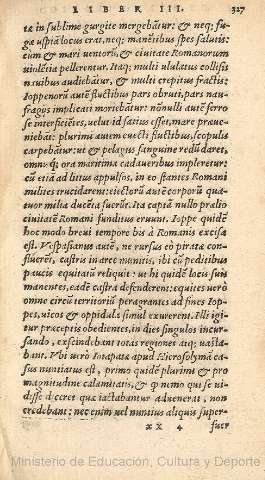 LIBER III. 327
ta in sublime gurgite mergebātur: & neq; fu-
gæ uspiā locus erat, neq; manētibus spes salutis:
cum & mari uentorū, & ciuitate Romanorum
uiolētia pellerentur. Itaq; multi ululatus collisis
nauibus audiebātur, & multi crepitus fractis:
Ioppenorū autē fluctibus pars obruti, pars nau-
fragos implicati moriebātur: nōnulli autē ferro
se interficiētes, uelut id satius esset, mare præue-
niebāt: plurimi autem euecti fluctibus, scopulis
carpebātur: ut & pelagus sanguine redūdaret,
omnisq; ora maritima cadaueribus impleretur:
cū etiā ad littus appulsos, in eo stantes Romani
milites trucidarent: eiectorū autē corporū qua-
tuor milia ducēta fuerūt. Ita captā nullo prælio
ciuitatē Romani funditus eruunt. Ioppe quidē
hoc modo breui tempore bis à Romanis excisa
est. Vespasianus autē, ne rursus eò pirata con-
fluerēt, castris in arce munitis, ibi cū peditibus
paucis equitatū reliquit: ut hi quidē locis suis
manentes, eadē castra defenderent: equites uerò
omne circū territoriū peragrantes ad fines Iop-
pes, uicos & oppidula simul exurerent. Illi igi-
tur præceptis obedientes, in dies singulos incur-
sando, exscindebant totas regiones atq; uasta-
bant. Vbi uerò Ionapatæ apud Hierosolyma ca-
sus nuntiatus est, primò quidē plurimi & pro
magnitudine calamitatis, & q nemo qui se ui-
disse diceret quæ iactabantur aduenerat, non
credebant: nec enim uel nuntius aliquis super-
xx 4 fuer
Ministerio de Educación, Cultura y Deporte